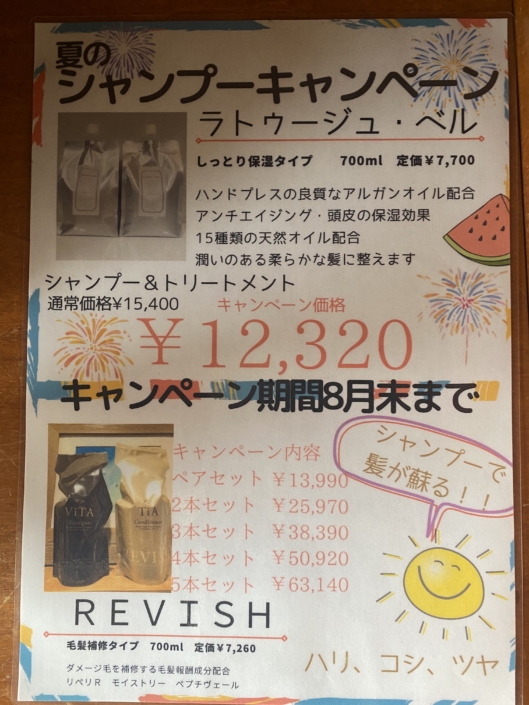 夏の
シャンプーキャンペーン
ラトゥージュ・ベル
しっとり保湿タイプ 700ml 定価¥7,700
ハンドプレスの良質なアルガンオイル配合
アンチエイジング・頭皮の保湿効果
15種類の天然オイル配合
潤いのある柔らかな髪に整えます
シャンプー&トリートメント
通常価格¥15,400
キャンペーン価格
¥12,320
キャンペーン期間8月末まで
キャンペーン内容
ペアセット ¥13,990
2本セット ¥25,970
3本セット ¥38,390
4本セット ¥50,920
5本セット ¥63,140
シャンプーで
髪が蘇る!!
ViTA
TiA
Conditioner
REVISH
毛髪補修タイプ 700ml 定価¥7,260
ダメージ毛を補修する毛髪報酬成分配合
リペリR モイストリー ペプチヴェール
ハリ、コシ、ツヤ